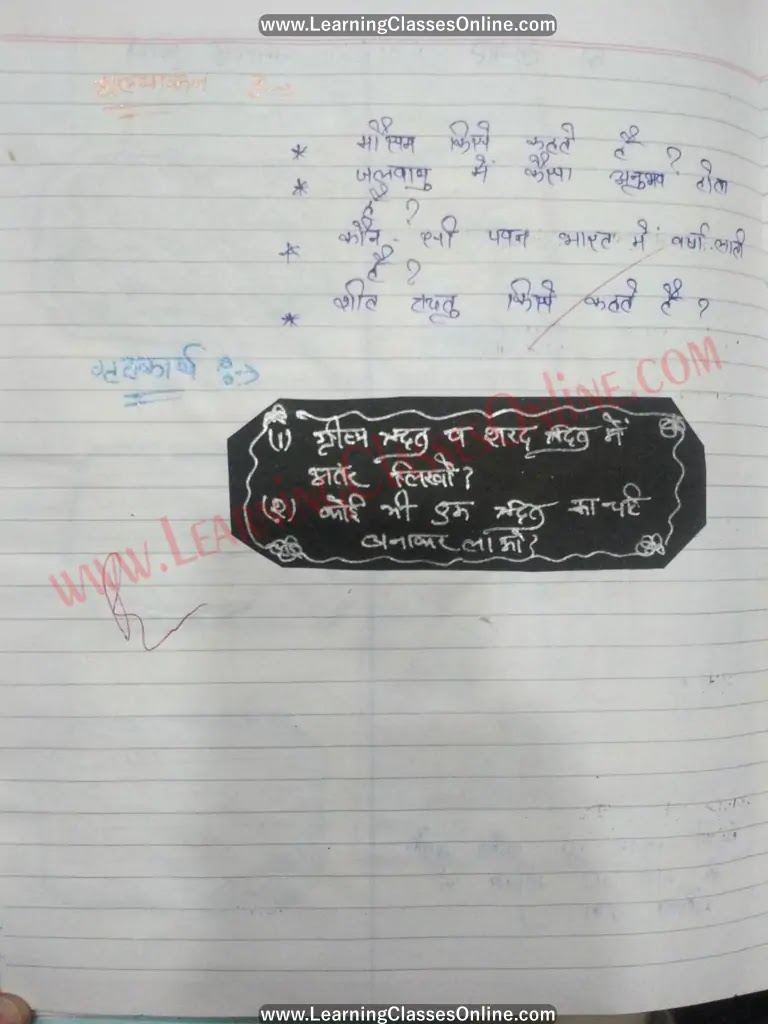 www.LearningClassesOnline.com
मूल्यांकन :-
* मौसम किसे कहते है ?
* जलवायु में कैसा अनुभव होता
है ?
* कौन-सी पवन भारत में वर्षा लाती
है ?
* शीत ऋतु किसे कहते है ?
गृहकार्य :->
(1) ग्रीष्म ऋतु व शरद ऋतु में
अंतर लिखो ?
(२) कोई भी एक ऋतु का चार्ट
बनाकर लाओ ?
www.LearningClassesOnline.com
www.LearningClassesOnline.com